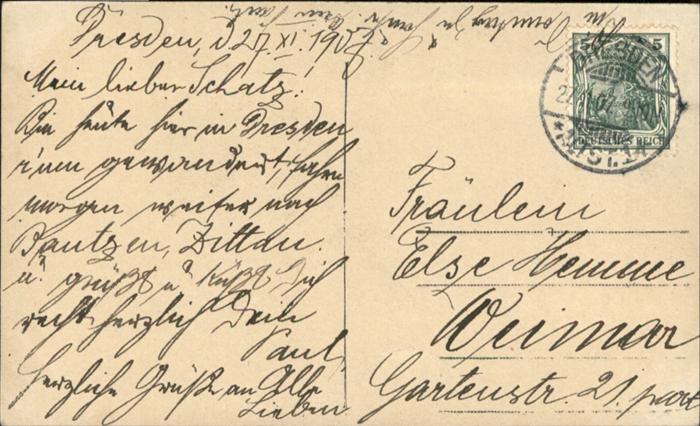 Dresden, d 27. XI. 1907.
Mein lieber Schatz!
Bin heute hier in Dresden
rum gewandert, fahre
morgen weiter nach
Bautzen, Zittau.
u. grüßt u. küßt Dich
recht herzlich Dein
Paul,
Herzliche Grüße an Alle
Lieben.
5 5
DEUTSCHES REICH
DRESDEN
ALTST. 14
Fräulein
Else Hemme
Weimar
Gartenstr. 21. part